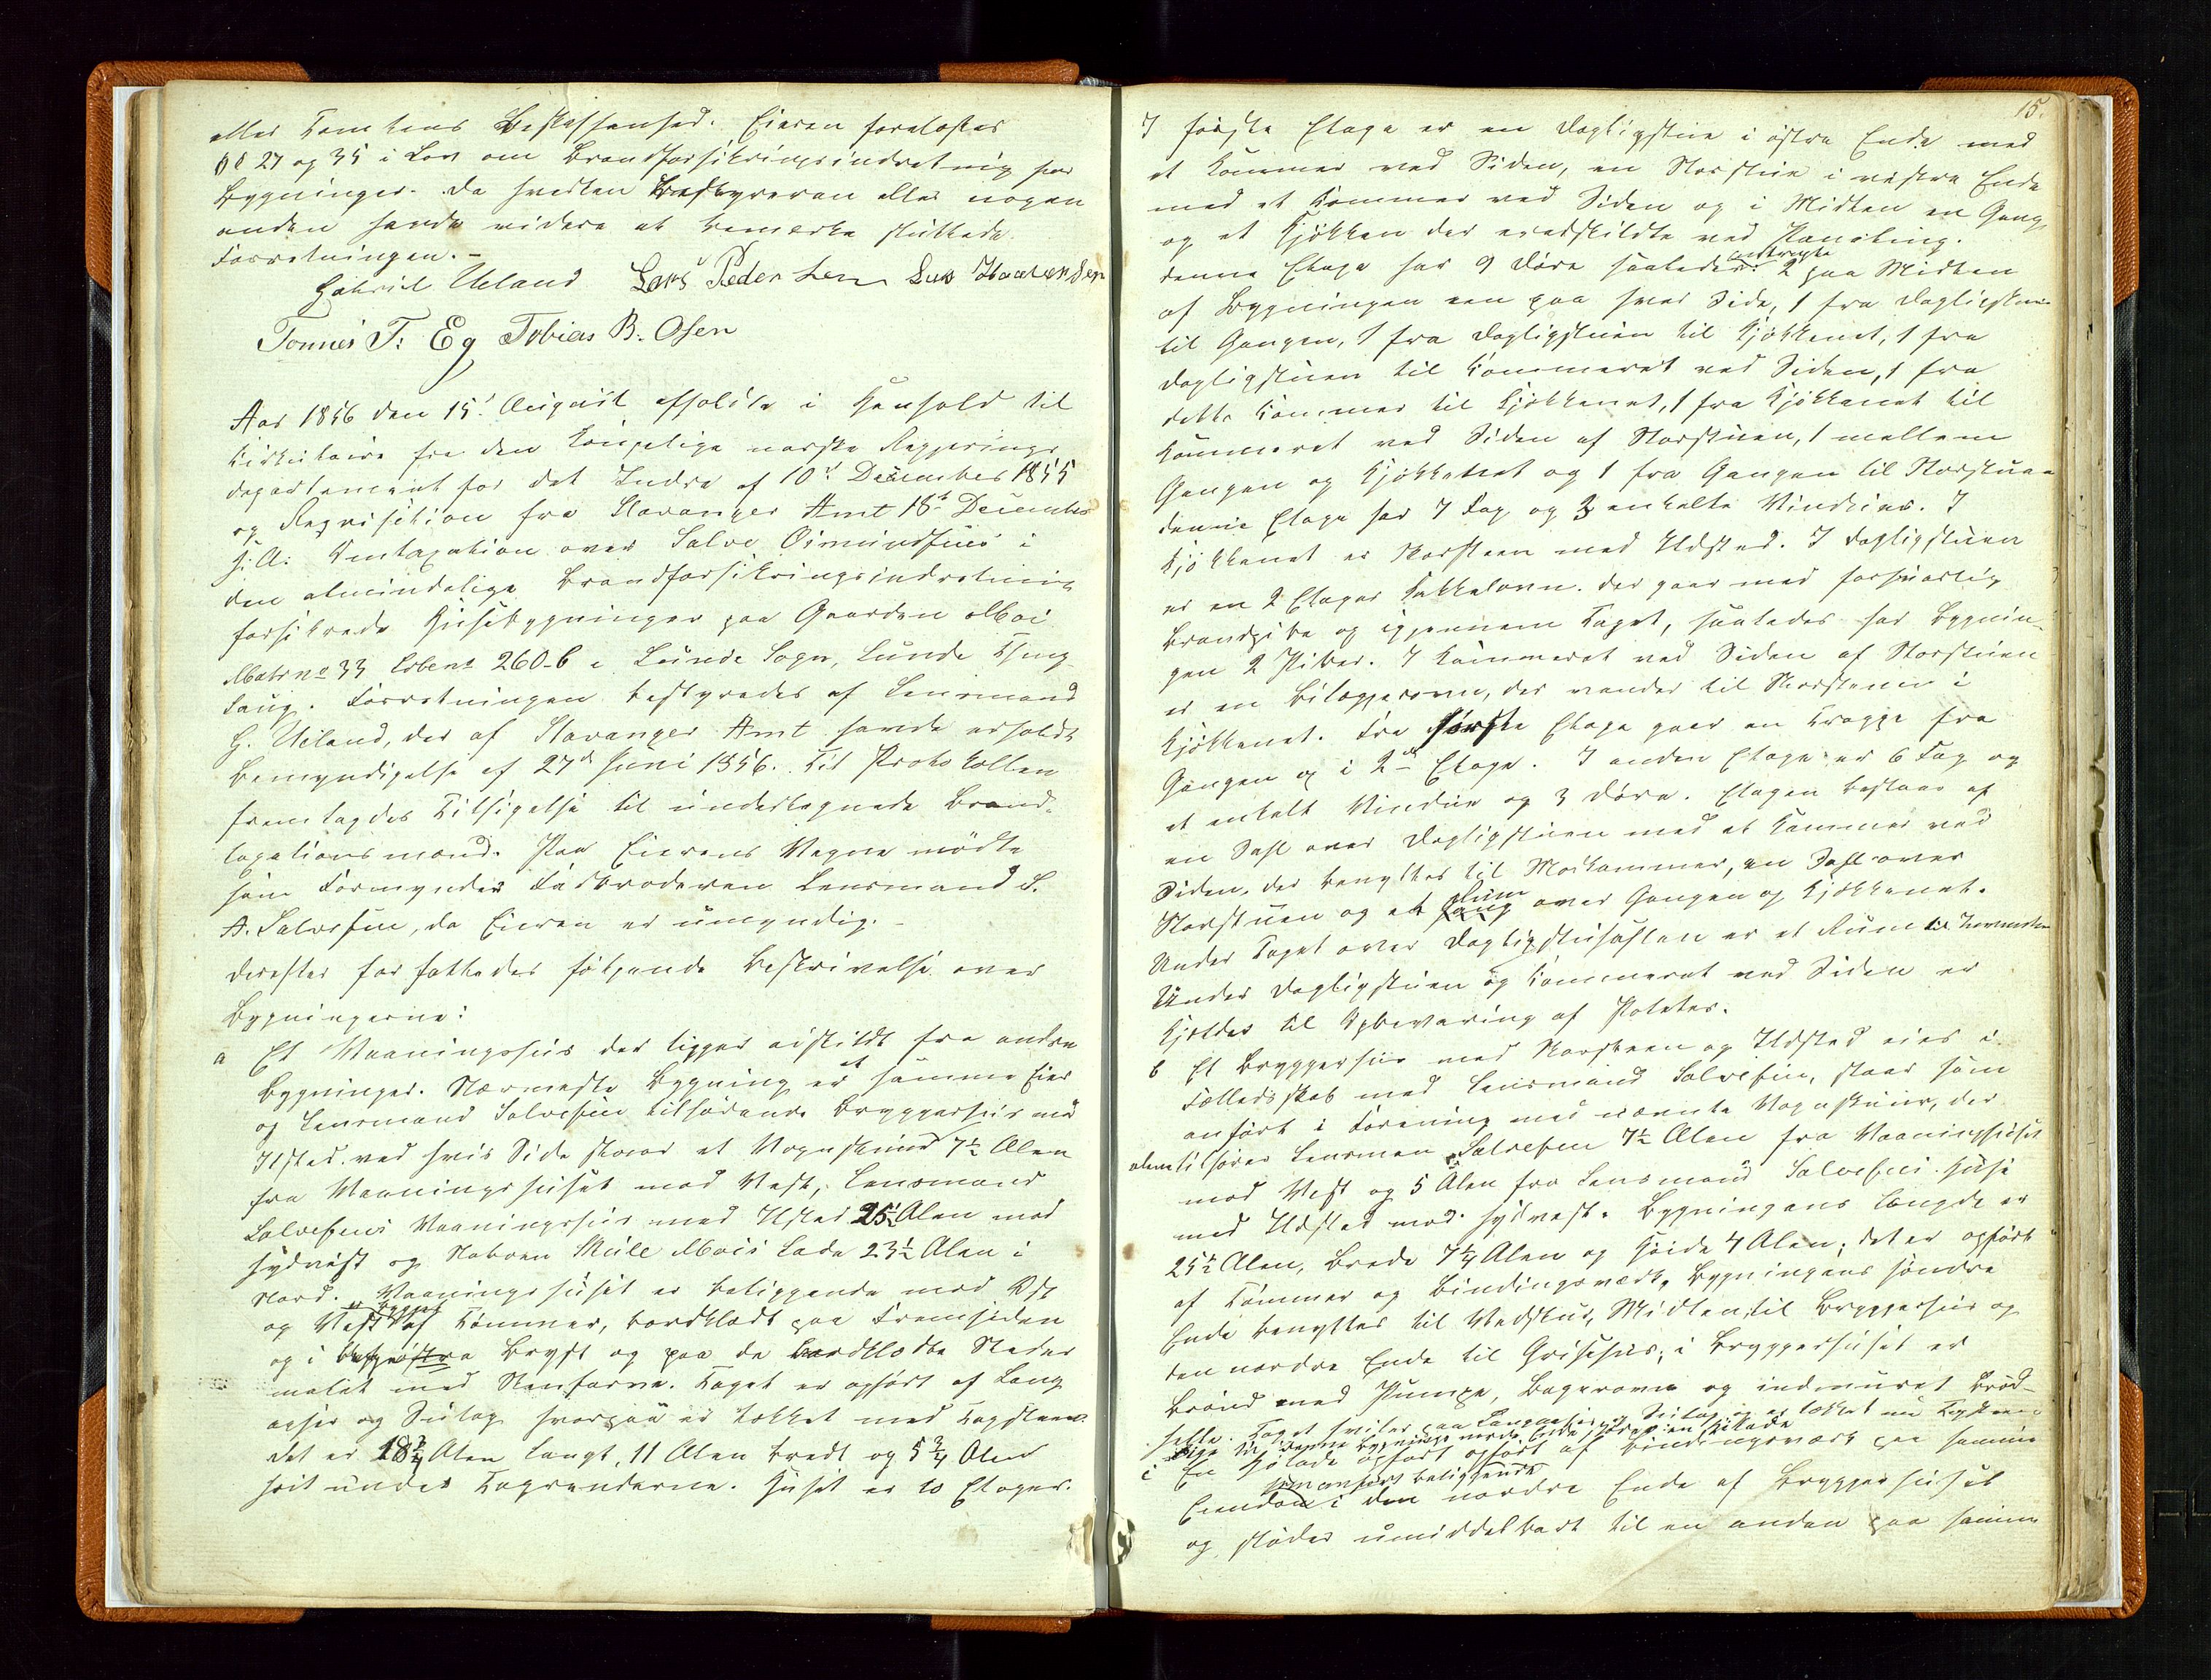 eller Tomtens Beskaffenhed. Eieren forelæstes
§§ 27 og 35 i Lov om Brandforsikringsindretning for
Bygninger. Da hverken Bestyreren eller nogen
anden havde videre at bemærke sluttede
Forretningen. –
Gabriel Ueland Lars Pedersen Lars
Tønnes T: Eg Tobias B. Osen
Aar 1856 den 15. August afholdtes i Henhold til
Cirkulaire fra den kongelige norske Regjerings
Departement for det Indre af 10d December 1855
og Requisition fra Stavanger Amt 18d December
s. A: Omtaxation over Salve Osmundsens i
den almindelige Brandforsikringsindretning
forsikrede Huusebygninger paa Gaarden Moi
Matr no 33 Løbeno 260 b i Lunde Sogn, Lunde Thing
laug. Forretningen bestyredes af Lensmand
G. Ueland, der af Stavanger Amt havde erholdt
Bemyndigelse af 27d Juni 1856. Til Protokollen
fremlagdes Tilsigelse til undertegnede Brand-
taxationsmænd. Paa Eierens Vegne mødte
som Formynder Fadbroderen Lensmand S.
A. Salvesen, da Eieren er umyndig. –
Derefter forfattedes følgende Beskrivelse over
Bygningerne:
a Et Vaaningshus der ligger adskildt fra andre
Bygninger. Nærmeste Bygning er et samme Eier
og Lensmand Salvesen tilhørende Bryggerhus med
Ildsted. ved hvis Side staaer et Vognskuur 7½ Alen
fra Vaaningshuset mod Vest, Lensmand
Salvesens Vaaningshus med Ildsted 25½ Alen mod
sydvest og Naboen Mæle Mois Lade 23½ Alen i
Nord. Vaaningshuset er beliggende mod Øst
og Vest er bygget af Tømmer, bordklædt paa Fremsiden
og i østre Bryst og paa de bordklædte Steder
malet med Stenfarve. Taget er opført af Lang
aaser og Sutag hvorpaa er tækket med Tagsteen.
Det er 18¾ Alen langt, 11 Alen bredt og 5¾ Alen
høit under Tagrenderne. Huset er to Etager.
15.
I første Etage er en Dagligstue i østre Ende med
et Kammer ved Siden, en Storstue i vestre Ende
med et Kammer ved Siden og i Midten en Gang
og et Kjøkken der er adskildte ved Paneling.
Denne Etage har 9 Døre saaledes: 2 paa Midten
af Bygningen een paa hver Side, 1 fra Dagligstuen
til Gangen, 1 fra Dagligstuen til Kjøkkenet, 1 fra
Dagligstuen til Kammeret ved Siden, 1 fra
dette Kammer til Kjøkkenet, 1 fra Kjøkkenet til
Kammeret ved Siden af Storstuen, 1 mellem
Gangen og Kjøkkenet og 1 fra Gangen til Storstuen
Denne Etage har 7 Fag og 3 enkelte Vinduer. I
Kjøkkenet er Skorsteen med Ildsted. I Dagligstuen
er en 2 Etages Kakkelovn. der gaar med forsvarlig
Brandpibe og igjennem Taget, saaledes har Bygnin-
gen 2 Piber. I Kammeret ved Siden af Storstuen
er en Bilæggerovn, der vender til Skorstenen i
Kjøkkenet. Fra første Etage gaar en Trappe fra
Gangen op i 2den Etage. I anden Etage er 6 Fag og
et enkelt Vindue og 3 Døre. Etagen bestaar af
en Sahl over Dagligstuen med et Kammer ved
Siden, der benyttes til Madkammer, en Sahl over
Storstuen og et Rum over Gangen og Kjøkkenet.
Under Taget over er et Rum
Under Dagligstuen og Kammeret ved Siden er
Kjelder til Opbevaring af Poteter.
b Et Bryggerhus med Skorsteen og Ildsted eies i
Fælledsskab med Lensmand Salvesen, staar som
anført i Forening med nævnte Vognskuur, der
alene tilhører Lensman Salvesen 7½ Alen fra Vaaningshuset
mod Vest og 5 Alen fra Lensmand Salvesens Huse
med Ildsted mod sydvest. Bygningens Længde er
25½ Alen, Brede 7¼ Alen og Høide 4 Alen; det er opført
af Tømmer og Bindingsværk, Bygningens søndre
Ende benyttes til Vedskur, Midten til Bryggerhus og
den nordre Ende til Grisehus; i Bryggerhuset er
Brønd med Pumpe, Bagerovn og indmuret Brød-
helle. Taget hviler paa Langaaser og Sutag og er tækket med Tagsteen
denne Bygnings nordre Ende
c En Høelade opført af Bindingsværk paa samme
som anført beliggende
Eiendom i den nordre Ende af Bryggerhuset
og støder umiddelbart til en anden paa samme